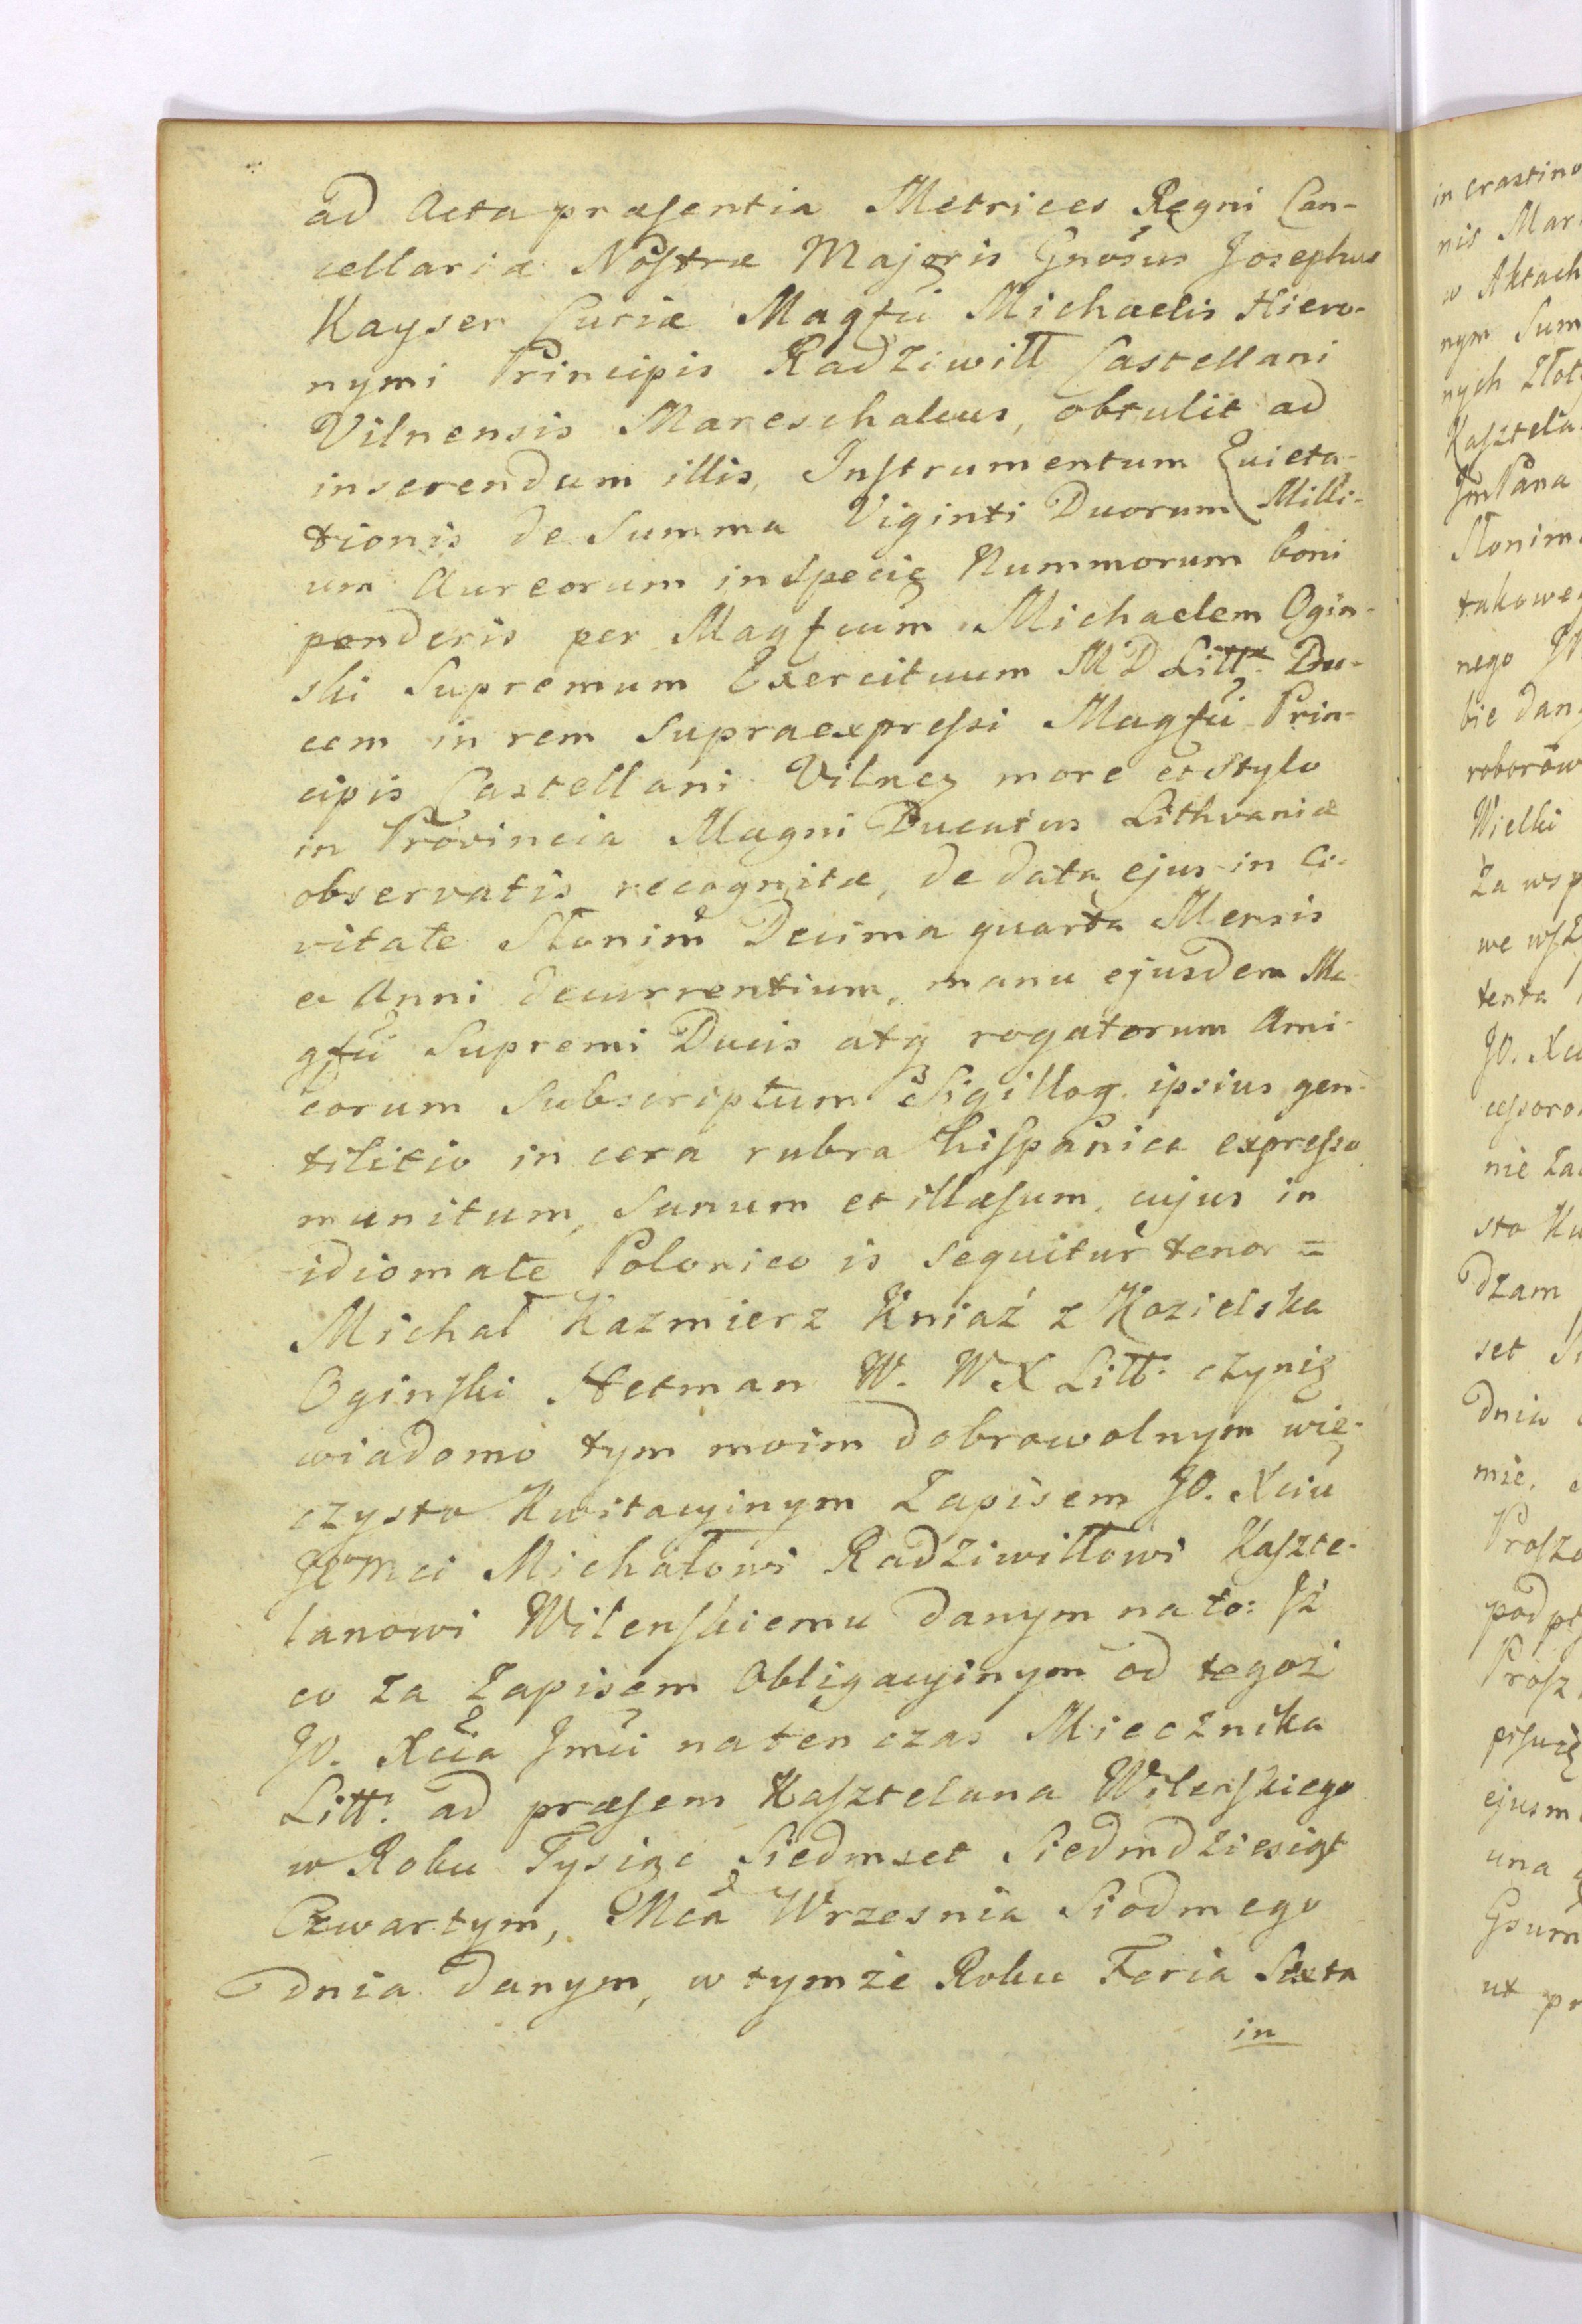 ad Acta præsentia Metrices Regni Can-
cellariæ Nostræ Majoris Gnosus Josephus
Kayser Curiæ Magfci Michaelis Hiero-
nymi Principis Radziwiłł Castellani
Vilnensis Mareschalcus, obtulit ad
inserendum illis, Instrumentum Quieta-
tionis de Summa Viginti Duorum Milli-
um Aureorum in Specie Nummorum boni
ponderis per Magfcum Michaelem Ogin-
ski Supremum Exercituum M D Littæ Du-
cem in rem Supraexpressi Magfci Prin-
cipis Castellani Vilnes more et Stylo
in Provincia Magni Ducatus Lithvaniæ
observatis recognitæ, de data ejus in Ci-
vitate Słonim Decima quarta Mensis
et Anni decurrentium, manu ejusdem Ma-
gfci Supremi Ducis atq rogatorum Ami-
corum Subscriptum Sigilloq. ipsius gen-
tilitio in cera rubra hispanica expresso
munitum, Sanum et illæsum, cujus in
idiomate Polonico is sequitur tenor =
Michał Kazmierz Kniaź z Kozielska
Oginski Hetman W. W X Litt. czynię
wiadomo tym moim dobrowolnym wie-
czysto Kwitacyinym Zapisem JO. Xciu
Jemci Michałowi Radziwiłłowi Kaszte-
lanowi Wilenskiemu danym na to: Iż
co za Zapisem Obligacyinym od tegoż
JO. Xcia Jmci na ten czas Miecznika
Litt: ad præsens Kasztelana Wilenskiego
w Roku Tysiąc Siedmset Siedmdziesiąt
Czwartym, Mca Wrzesnia Siodmego
dnia danym, w tymże Roku Feria Sexta
in
in crastino
nis Mar
w Aktach
nym Sum
nych Złot
Kasztela
JmPana
Słonim
takoweg
nego
bie dan
roborow
Wielki
Za wsp
we wsz
tenta
JO. Xci
cessoro
nie Za
sto Kw
dzam
set
dnia
mie.
Proszo
podp
Prosz
pisuię
ejusm
una
Gsum
ut pr